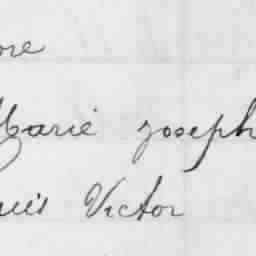 ore
Marie Joseph
ouis Victor